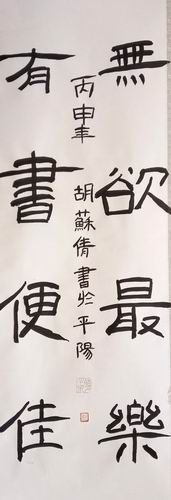 無欲最樂
有書便佳
丙申年
胡蘇倩書於平陽